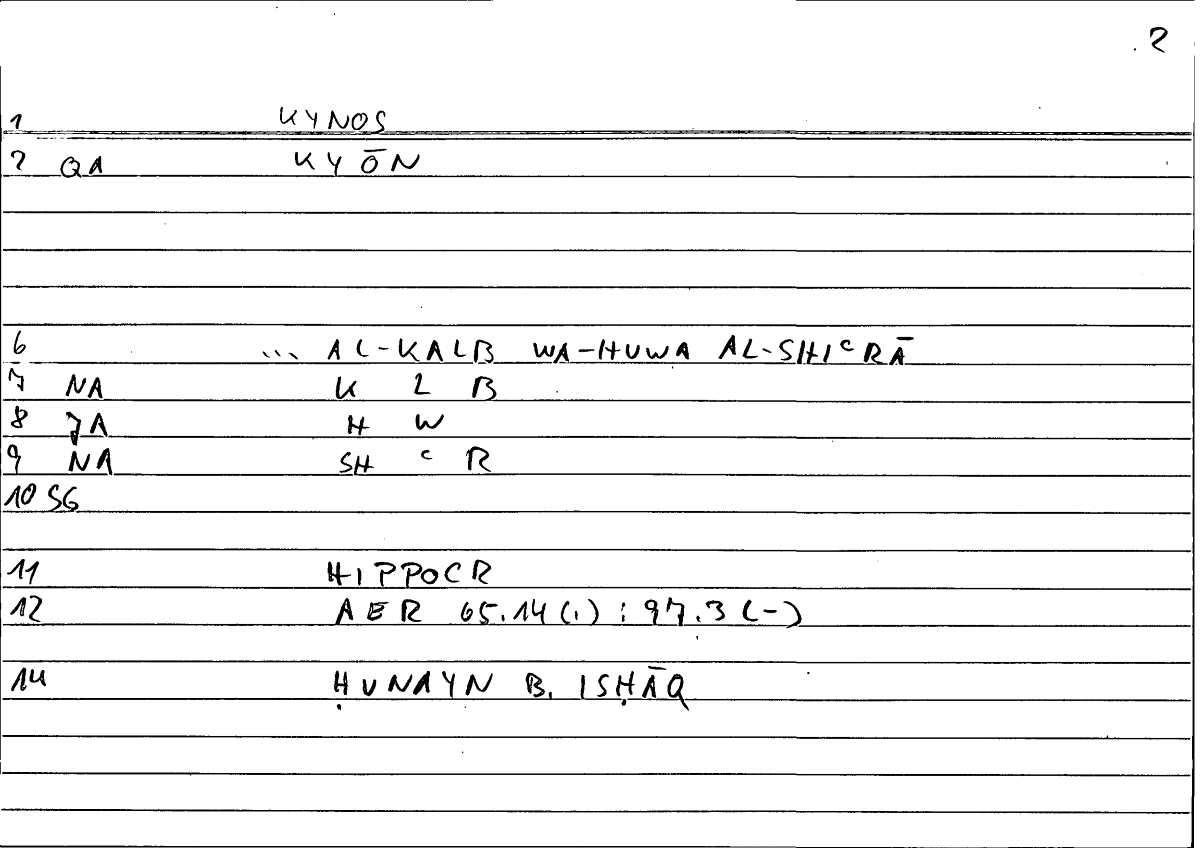 2
1 KYNOS
2 QA KYŌN
6 ... AL-KALB WA-HUWA AL-SHIᶜRĀ
7 NA K L B
8 JA H W
9 NA SH ᶜ R
10 SG
11 HIPPOCR
12 AER 65.14(1) : 97.3 (-)
14 ḤUNAYN B. ISḤĀQ